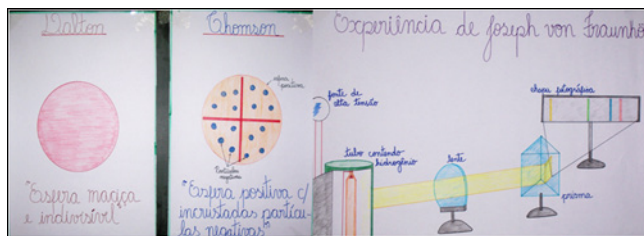 Dalton
"Esfera maciça
e indivisível"
Thomson
esfera
positiva
Partículas
negativas
"Esfera positiva c/
incrustadas partícu-
las negativas"
Experiência de Joseph von Fraunhö
fonte de
alta tensão
tubo contendo
hidrogênio
lente
prisma
chapa fotográfica